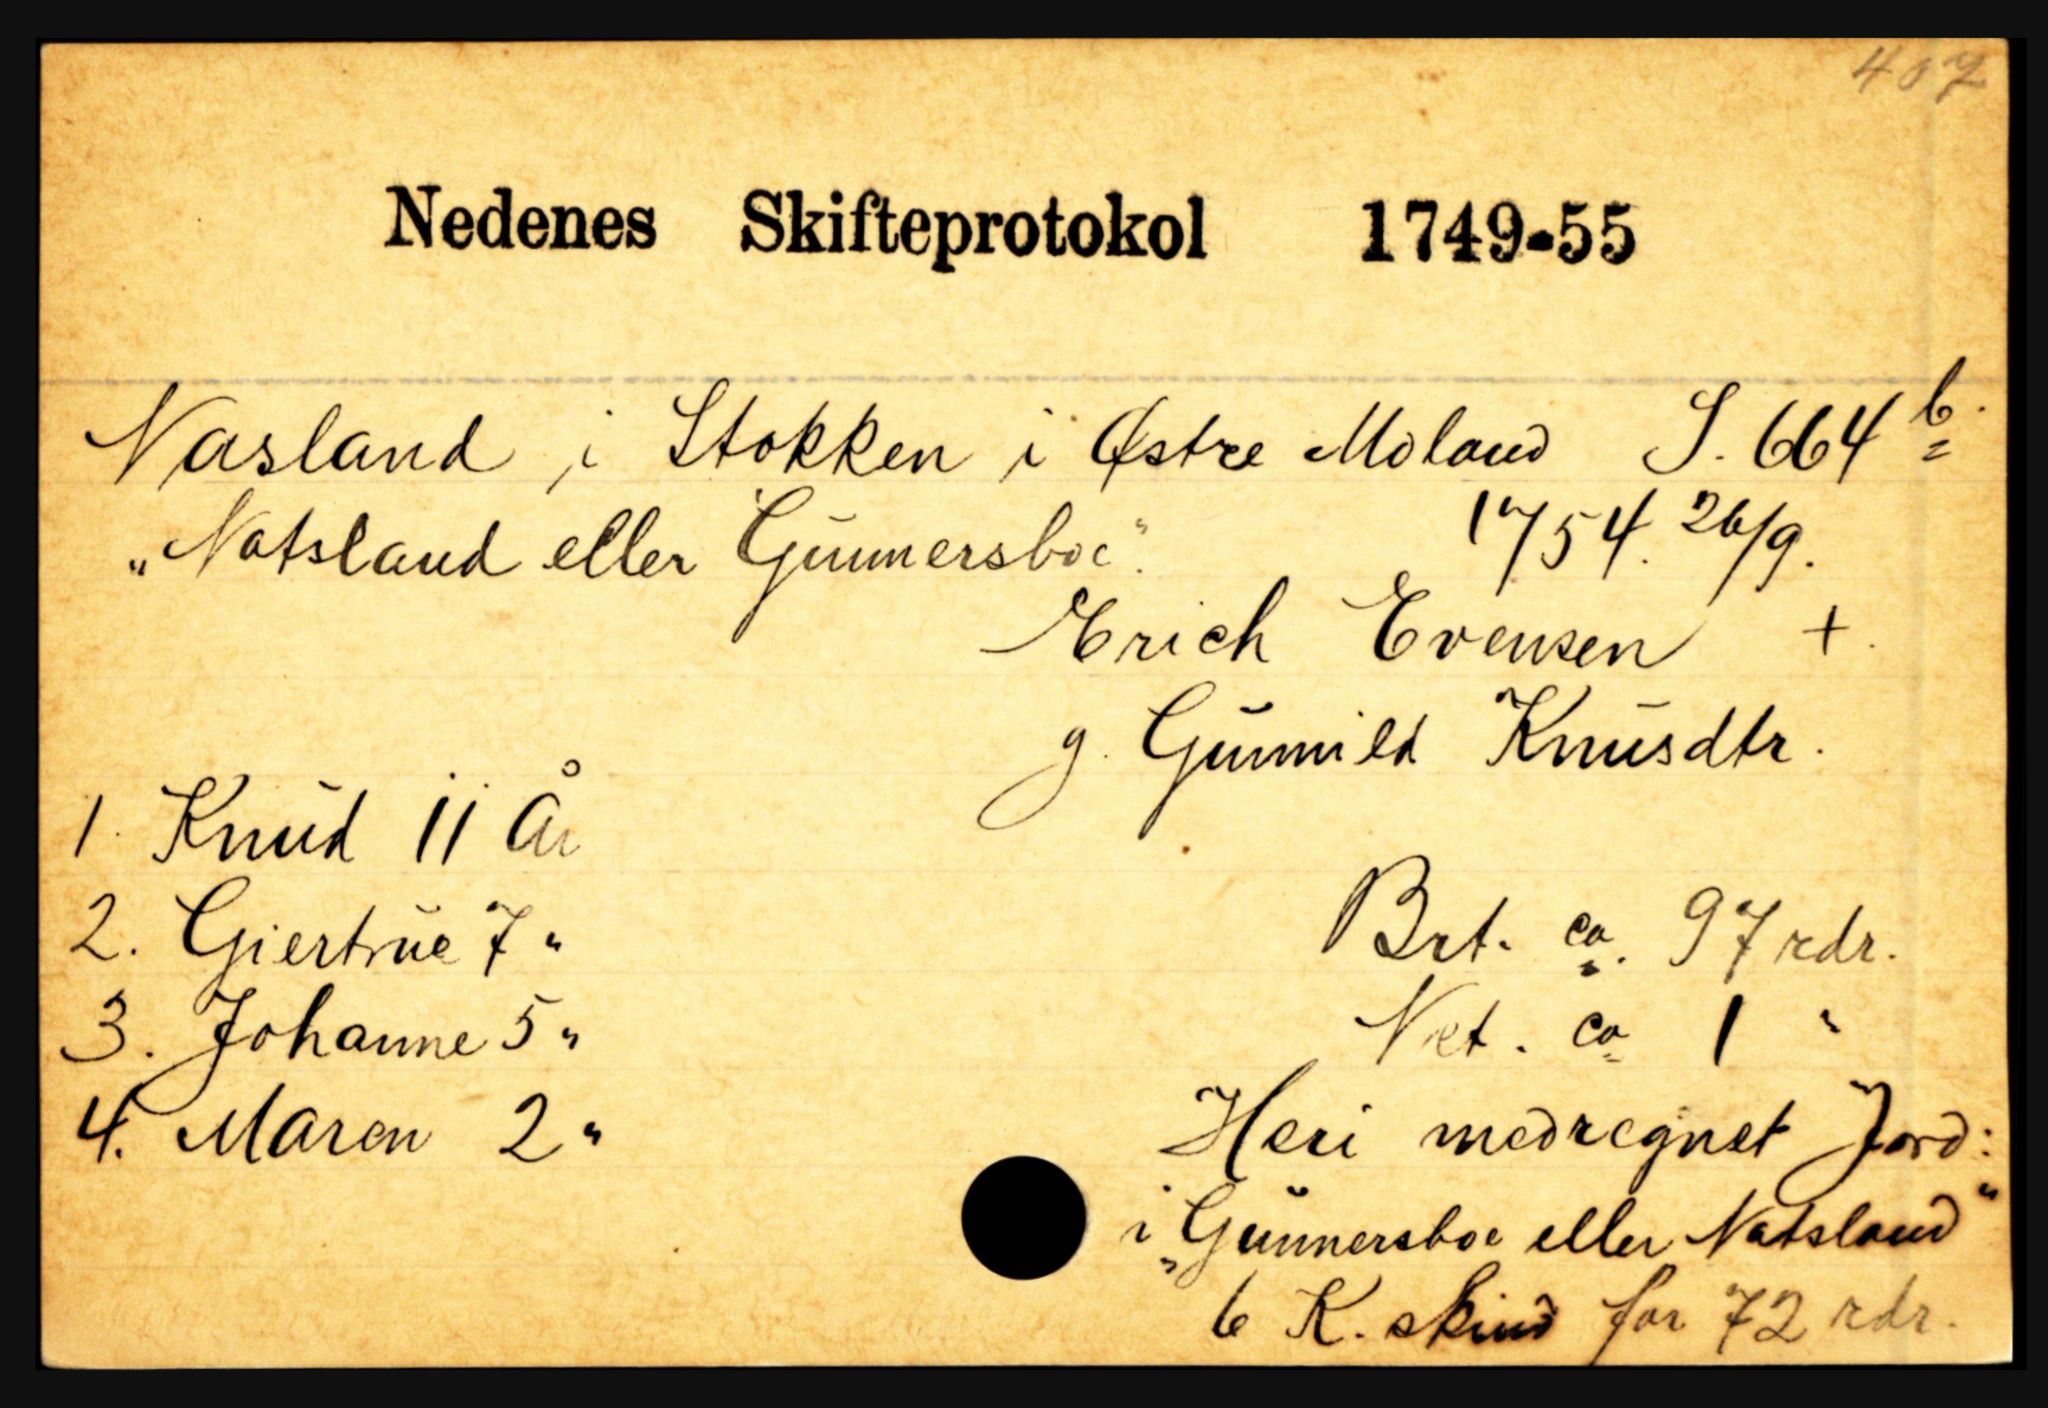 407
Nedenes Skifteprotokol 1749-55
Nasland i Stokken i Østre Moland S. 664 b.
„Natsland eller Gunnersboe". 1754. 26/9.
Erich Evensen +.
g. Gunnild Knusdtr.
1. Knud 11 År
2. Giertrue 7 "
Brt. ca. 97 rdr.
3. Johanne 5 "
Net. ca 1 "
4. Maren 2 "
Heri medregnet Jord:
i „Gunnersboe eller Natsland"
6 K. skind for 72 rdr.